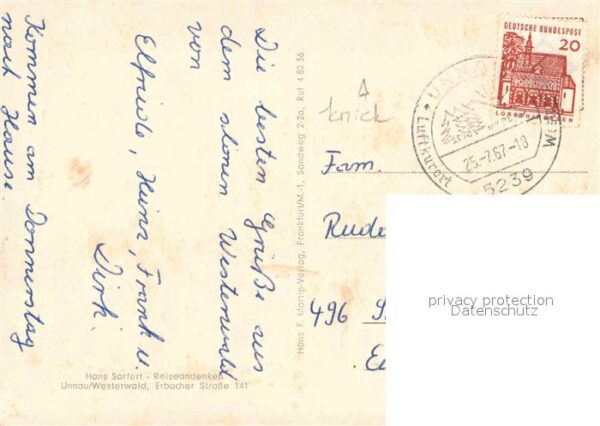 Die besten Grüße aus
dem schönen Westerwald
von
Elfriede, Heinz, Frank u.
Dirk.
Kommen am Donnerstag
nach Hause.
Hans F. Martip-Verlag, Frankfurt/M.-1, Sandweg 2-2a, Ruf 4 82 36
Hans Sarfert - Reiseandenken
Unnau/Westerwald, Erbacher Straße 141
knick
DEUTSCHE BUNDESPOST
20
LORSCH/HESSEN
UNNAU
25.-7.67-18
Luftkurort
5239
Fam.
496
privacy protection
Datenschutz